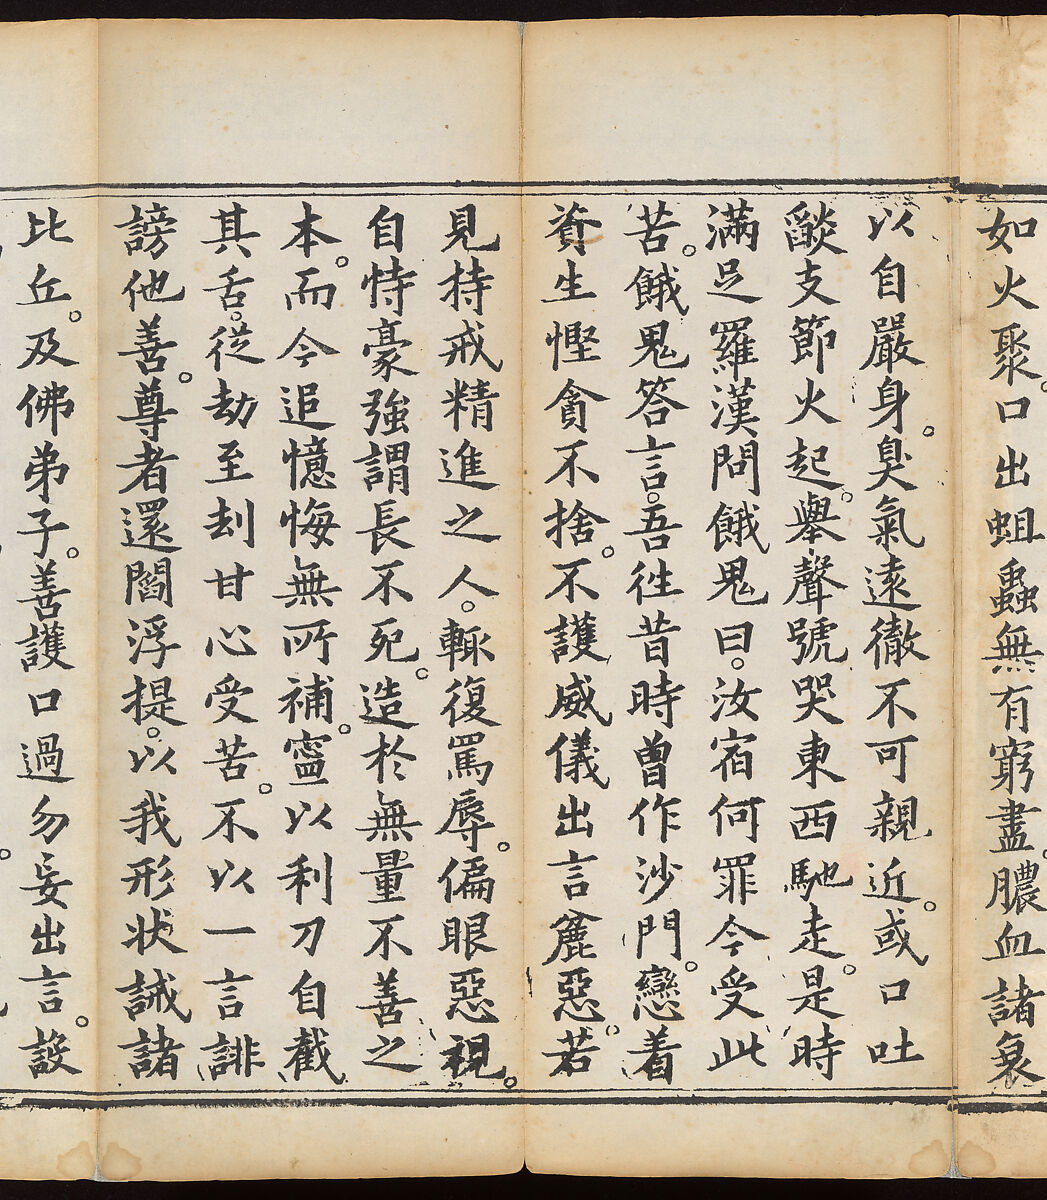 如火聚。口出蛆蟲無有窮盡。膿血諸衰
以自嚴身。臭氣遠徹不可親近。或口吐
燄支節火起。舉聲號哭東西馳走。是時
滿足羅漢問餓鬼曰。汝宿何罪今受此
苦。餓鬼答言。吾徃昔時曾作沙門。戀着
資生慳貪不捨。不護威儀出言麁惡。若
見持戒精進之人。輙復罵辱。偏眼惡視。
自恃豪強謂長不死。造於無量不善之
本。而今追憶悔無所補。寧以利刀自截
其舌。從劫至刧甘心受苦。不以一言誹
謗他善。尊者還閻浮提。以我形狀誡諸
比丘。及佛弟子。善護口過勿妄出言。設